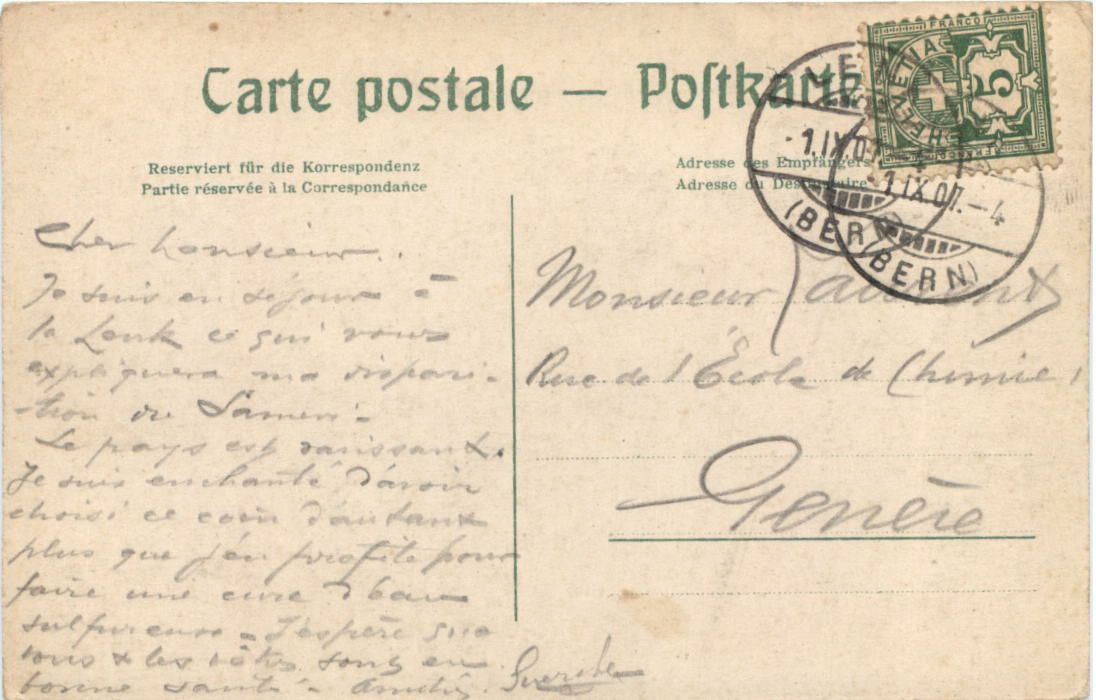 Carte postale — Postkarte
FRANCO
HELVETIA
5
1.IX.07
1.IX.07.-4
(BER
(BERN)
Reserviert für die Korrespondenz
Partie réservée à la Correspondance
Adresse des Empfängers
Adresse du Destinataire
Cher Monsieur.
Je suis en séjour à
la Lenk ce qui vous
expliquera ma dispari-
tion de
Le pays est ravissant.
Je suis enchanté d'avoir
choisi ce coin d'autant
plus que j'en profite pour
faire une cure d'eau
sulfureuse - J'espère que
vous & les vôtres sont en
bonne santé -
Monsieur
Rue de l'École de Chimie,
Genève